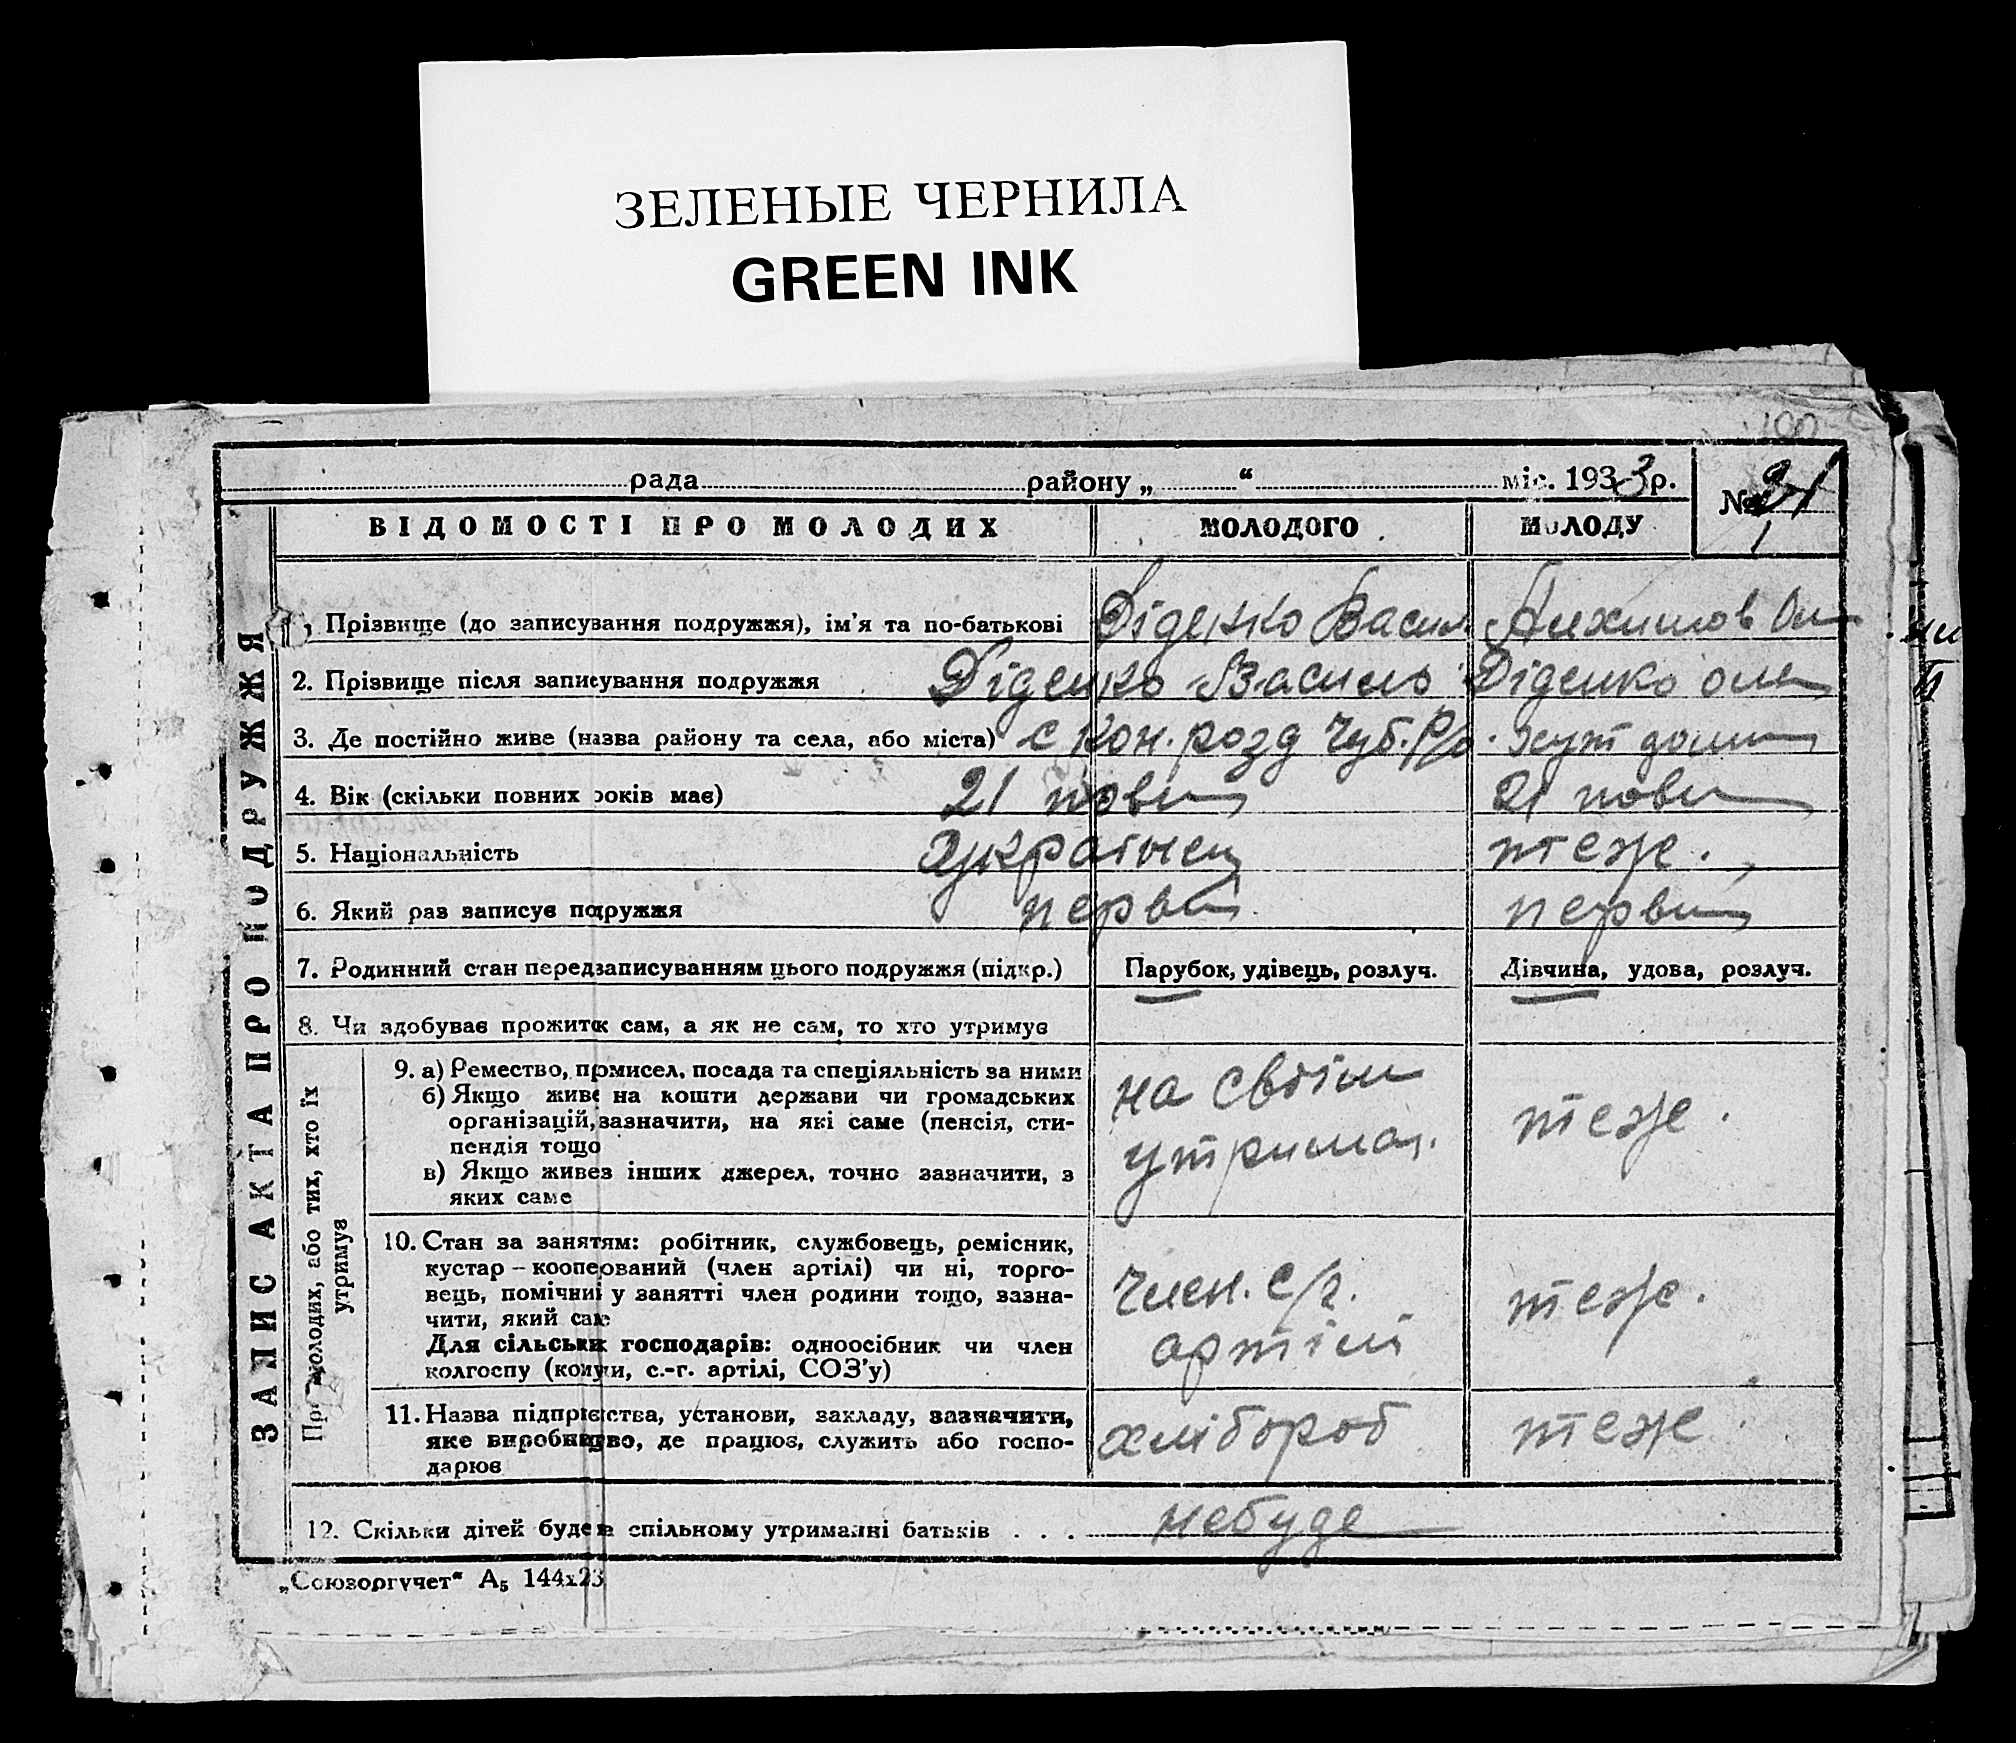 ЗЕЛЕНЫЕ ЧЕРНИЛА
GREEN INK
100
рада району „ “ міс. 1933 р. №
ВІДОМОСТІ ПРО МОЛОДИХ МОЛОДОГО МОЛОДУ
ЗАПИС АКТА ПРО ПОДРУЖЖЯ
1, Прізвище (до записування подружжя), ім'я та по-батькові Діденко Васил
2. Прізвище після записування подружжя Діденко Василь Діденко оле
3. Де постійно живе (назва району та села, або міста) с кон. розд Чуб. Р/о. хут
4. Вік (скільки повних років має) 21 повн 21 повн
5. Національність українец теж.
6. Який раз записує подружжя первий первий
7. Родинний стан перед записуванням цього подружжя (підкр.) Парубок, удівець, розлуч. Дівчина, удова, розлуч.
8. Чи здобуває прожиток сам, а як не сам, то хто утримує
Про молодих, або тих, хто їх
утримує
9. а) Ремество, промисел, посада та спеціяльність за ними
б) Якщо живе на кошти держави чи громадських
організацій, зазначити, на які саме (пенсія, сти-
пендія тощо
в) Якщо живе з інших джерел, точно зазначити, з
яких саме
на своїм
утриман.
теж.
10. Стан за занятям: робітник, службовець, ремісник,
кустар – кооперований (член артілі) чи ні, торго-
вець, помічний у занятті член родини тощо, зазна-
чити, який саме
Для сільських господарів: одноосібник чи член
колгоспу (комуни, с.-г. артілі, СОЗ'у)
член. с/г.
артілі
теж.
11. Назва підприємства, установи, закладу, зазначити,
яке виробництво, де працює, служить або госпо-
дарює
хлібороб
теж.
12. Скільки дітей буде в спільному утриманні батьків . . . небуде
„Союзоргучет“ А5 144х23